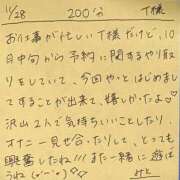 11/28 200分 T様
お仕事が忙しいT様だけど、10
月中旬から予約に関するやり取
りをしていて、今回やっとはじめまし
てすることが出来て、嬉しかったよ♡
沢山2人で気持ちいいことしたり、
オナニー見せ合ったりして、とっても
興奮したね!!!また一緒に遊ば
うね(〃'▽'〃)♡ みと